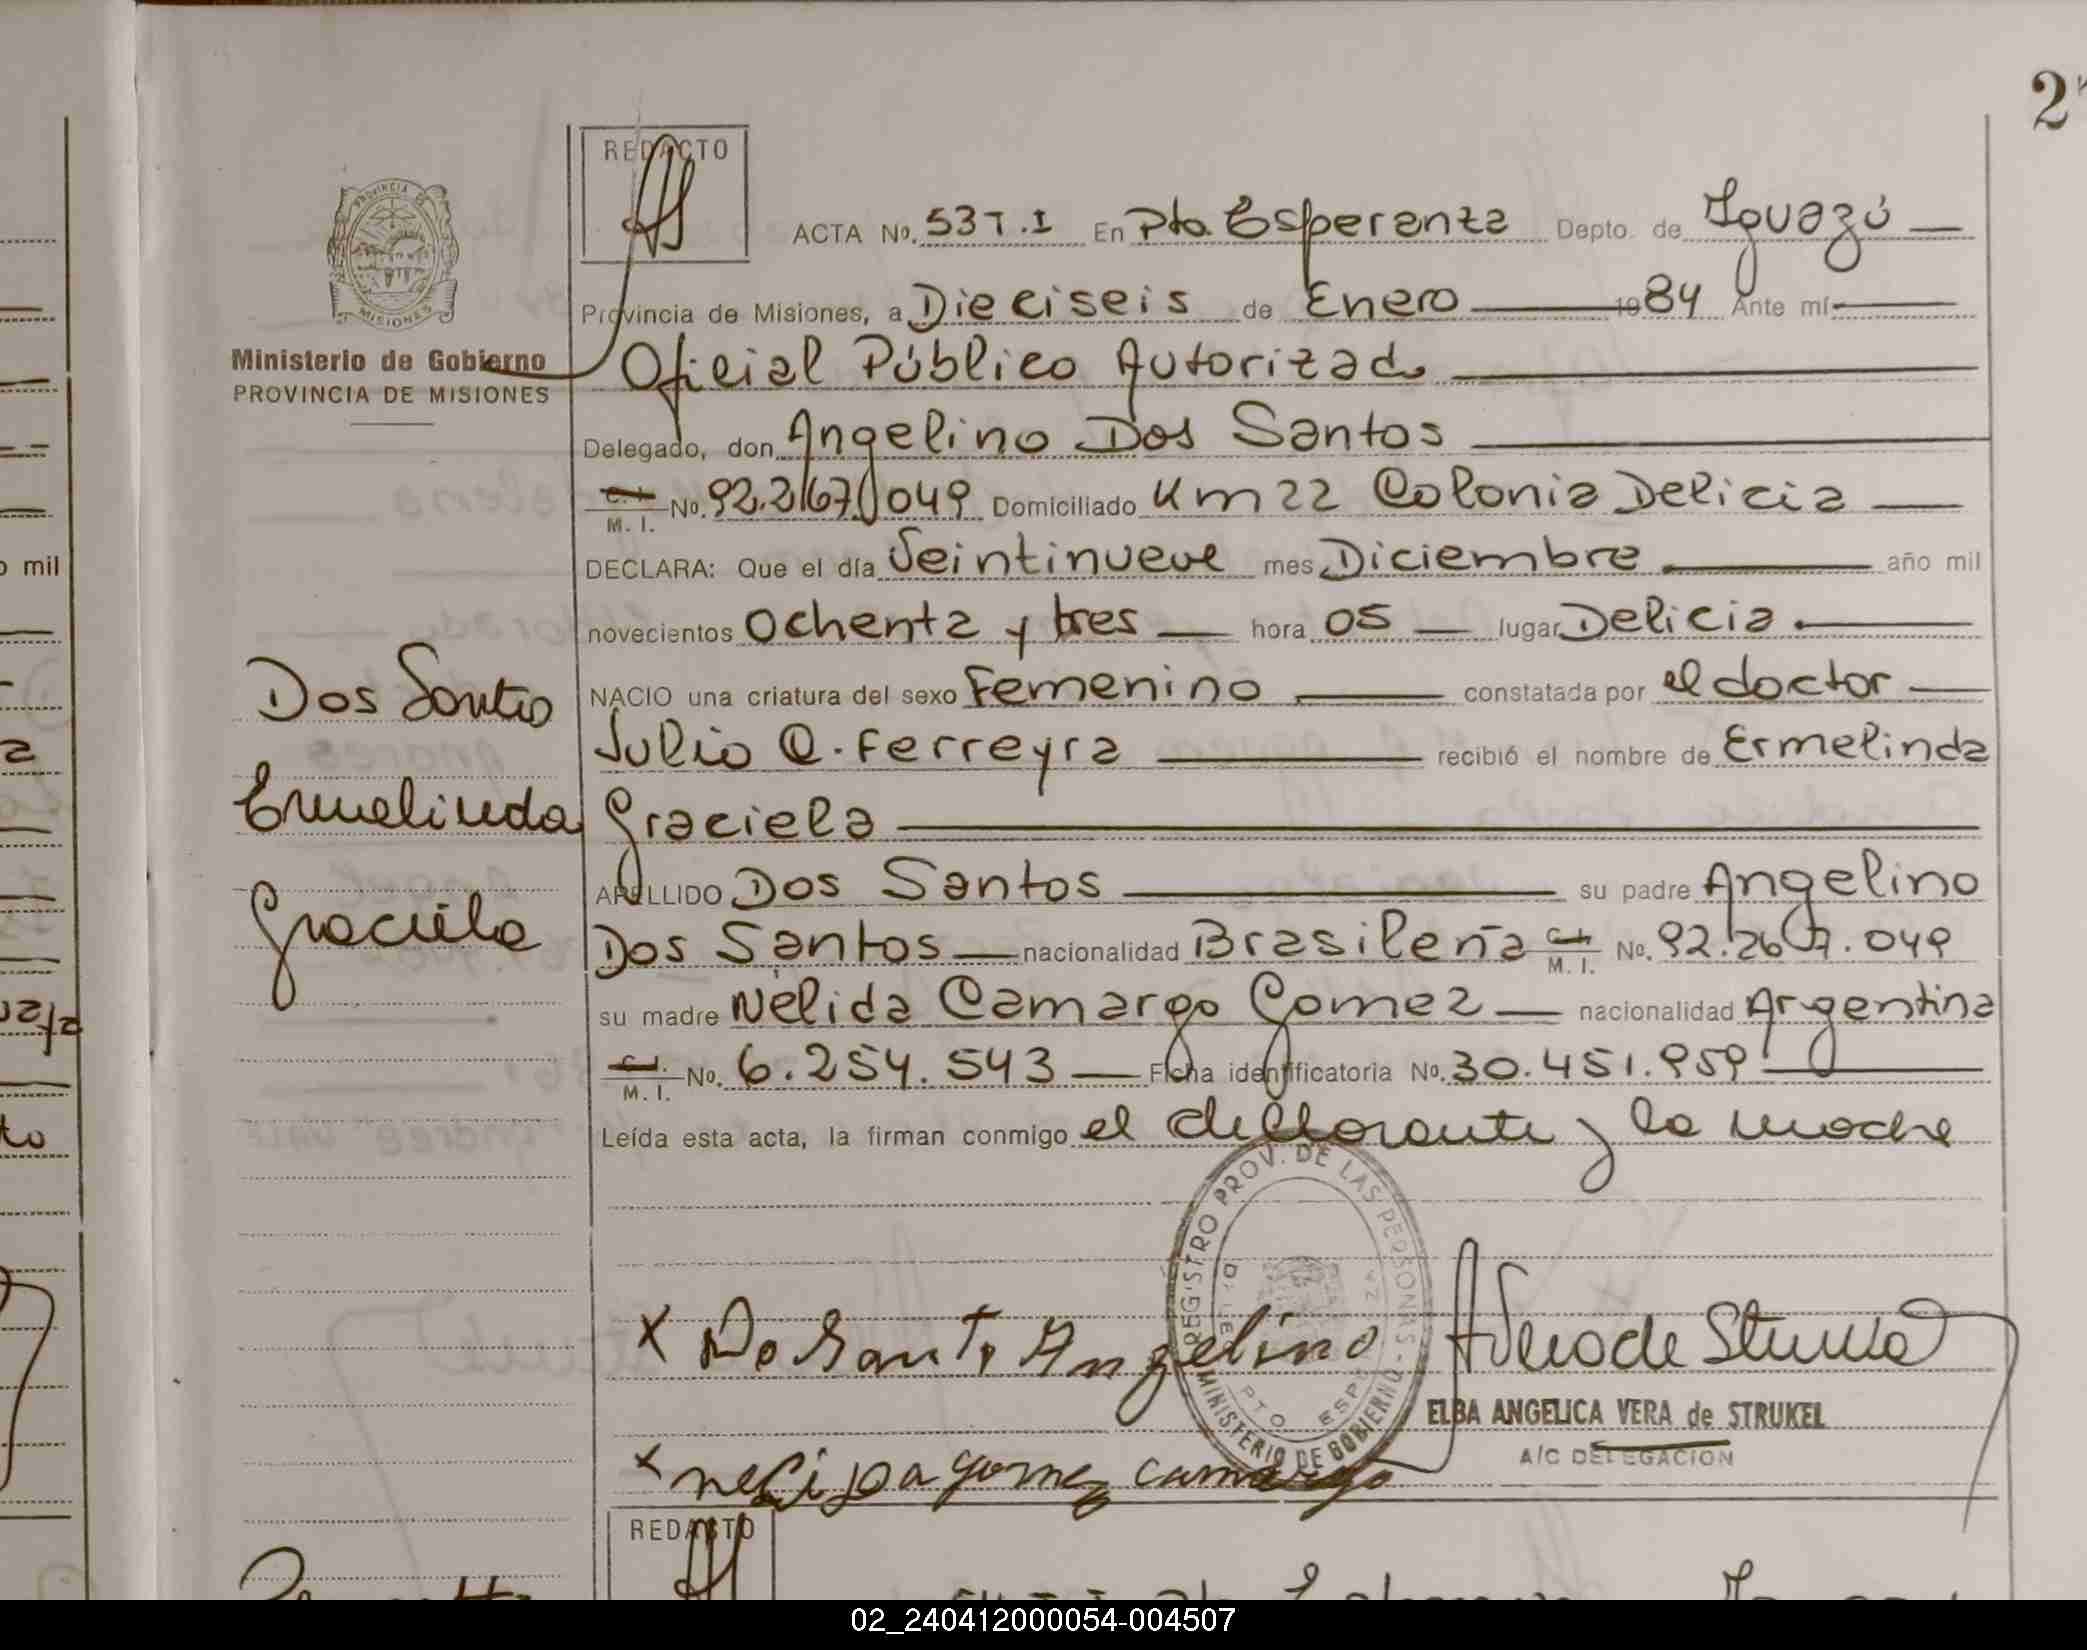 2
REDACTO
ACTA No. 537.I En Pto. Esperanza Depto. de Iguazú
Provincia de Misiones, a Dieciseis de Enero 1984 Ante mí
Oficial Público Autorizado
Delegado, don Angelino Dos Santos
C. I. M. I. No. 92.267.049 Domiciliado Km 22 Colonia Delicia
DECLARA: Que el día Veintinueve mes Diciembre año mil
novecientos Ochenta y tres hora 05 lugar Delicia.
NACIO una criatura del sexo Femenino constatada por el doctor
Julio Q. Ferreyra recibió el nombre de Ermelinda
Graciela
APELLIDO Dos Santos su padre Angelino
Dos Santos nacionalidad Brasileña C. I. M. I. No. 92.267.049
su madre Nélida Camargo Gomez nacionalidad Argentina
C. I. M. I. No. 6.254.543 Ficha identificatoria No. 30.451.959
Leída esta acta, la firman conmigo el declarante y la madre
PROVINCIA DE MISIONES
Ministerio de Gobierno
PROVINCIA DE MISIONES
Dos Santos
Ermelinda
Graciela
REGISTRO PROV. DE LAS PERSONAS - MINISTERIO DE GOBIERNO
PTO ESP
x Do Santo Angelino
AVera de Strukel
ELBA ANGELICA VERA de STRUKEL
A/C DELEGACION
x nelida gomez camargo
REDACTO
o mil
02_240412000054-004507